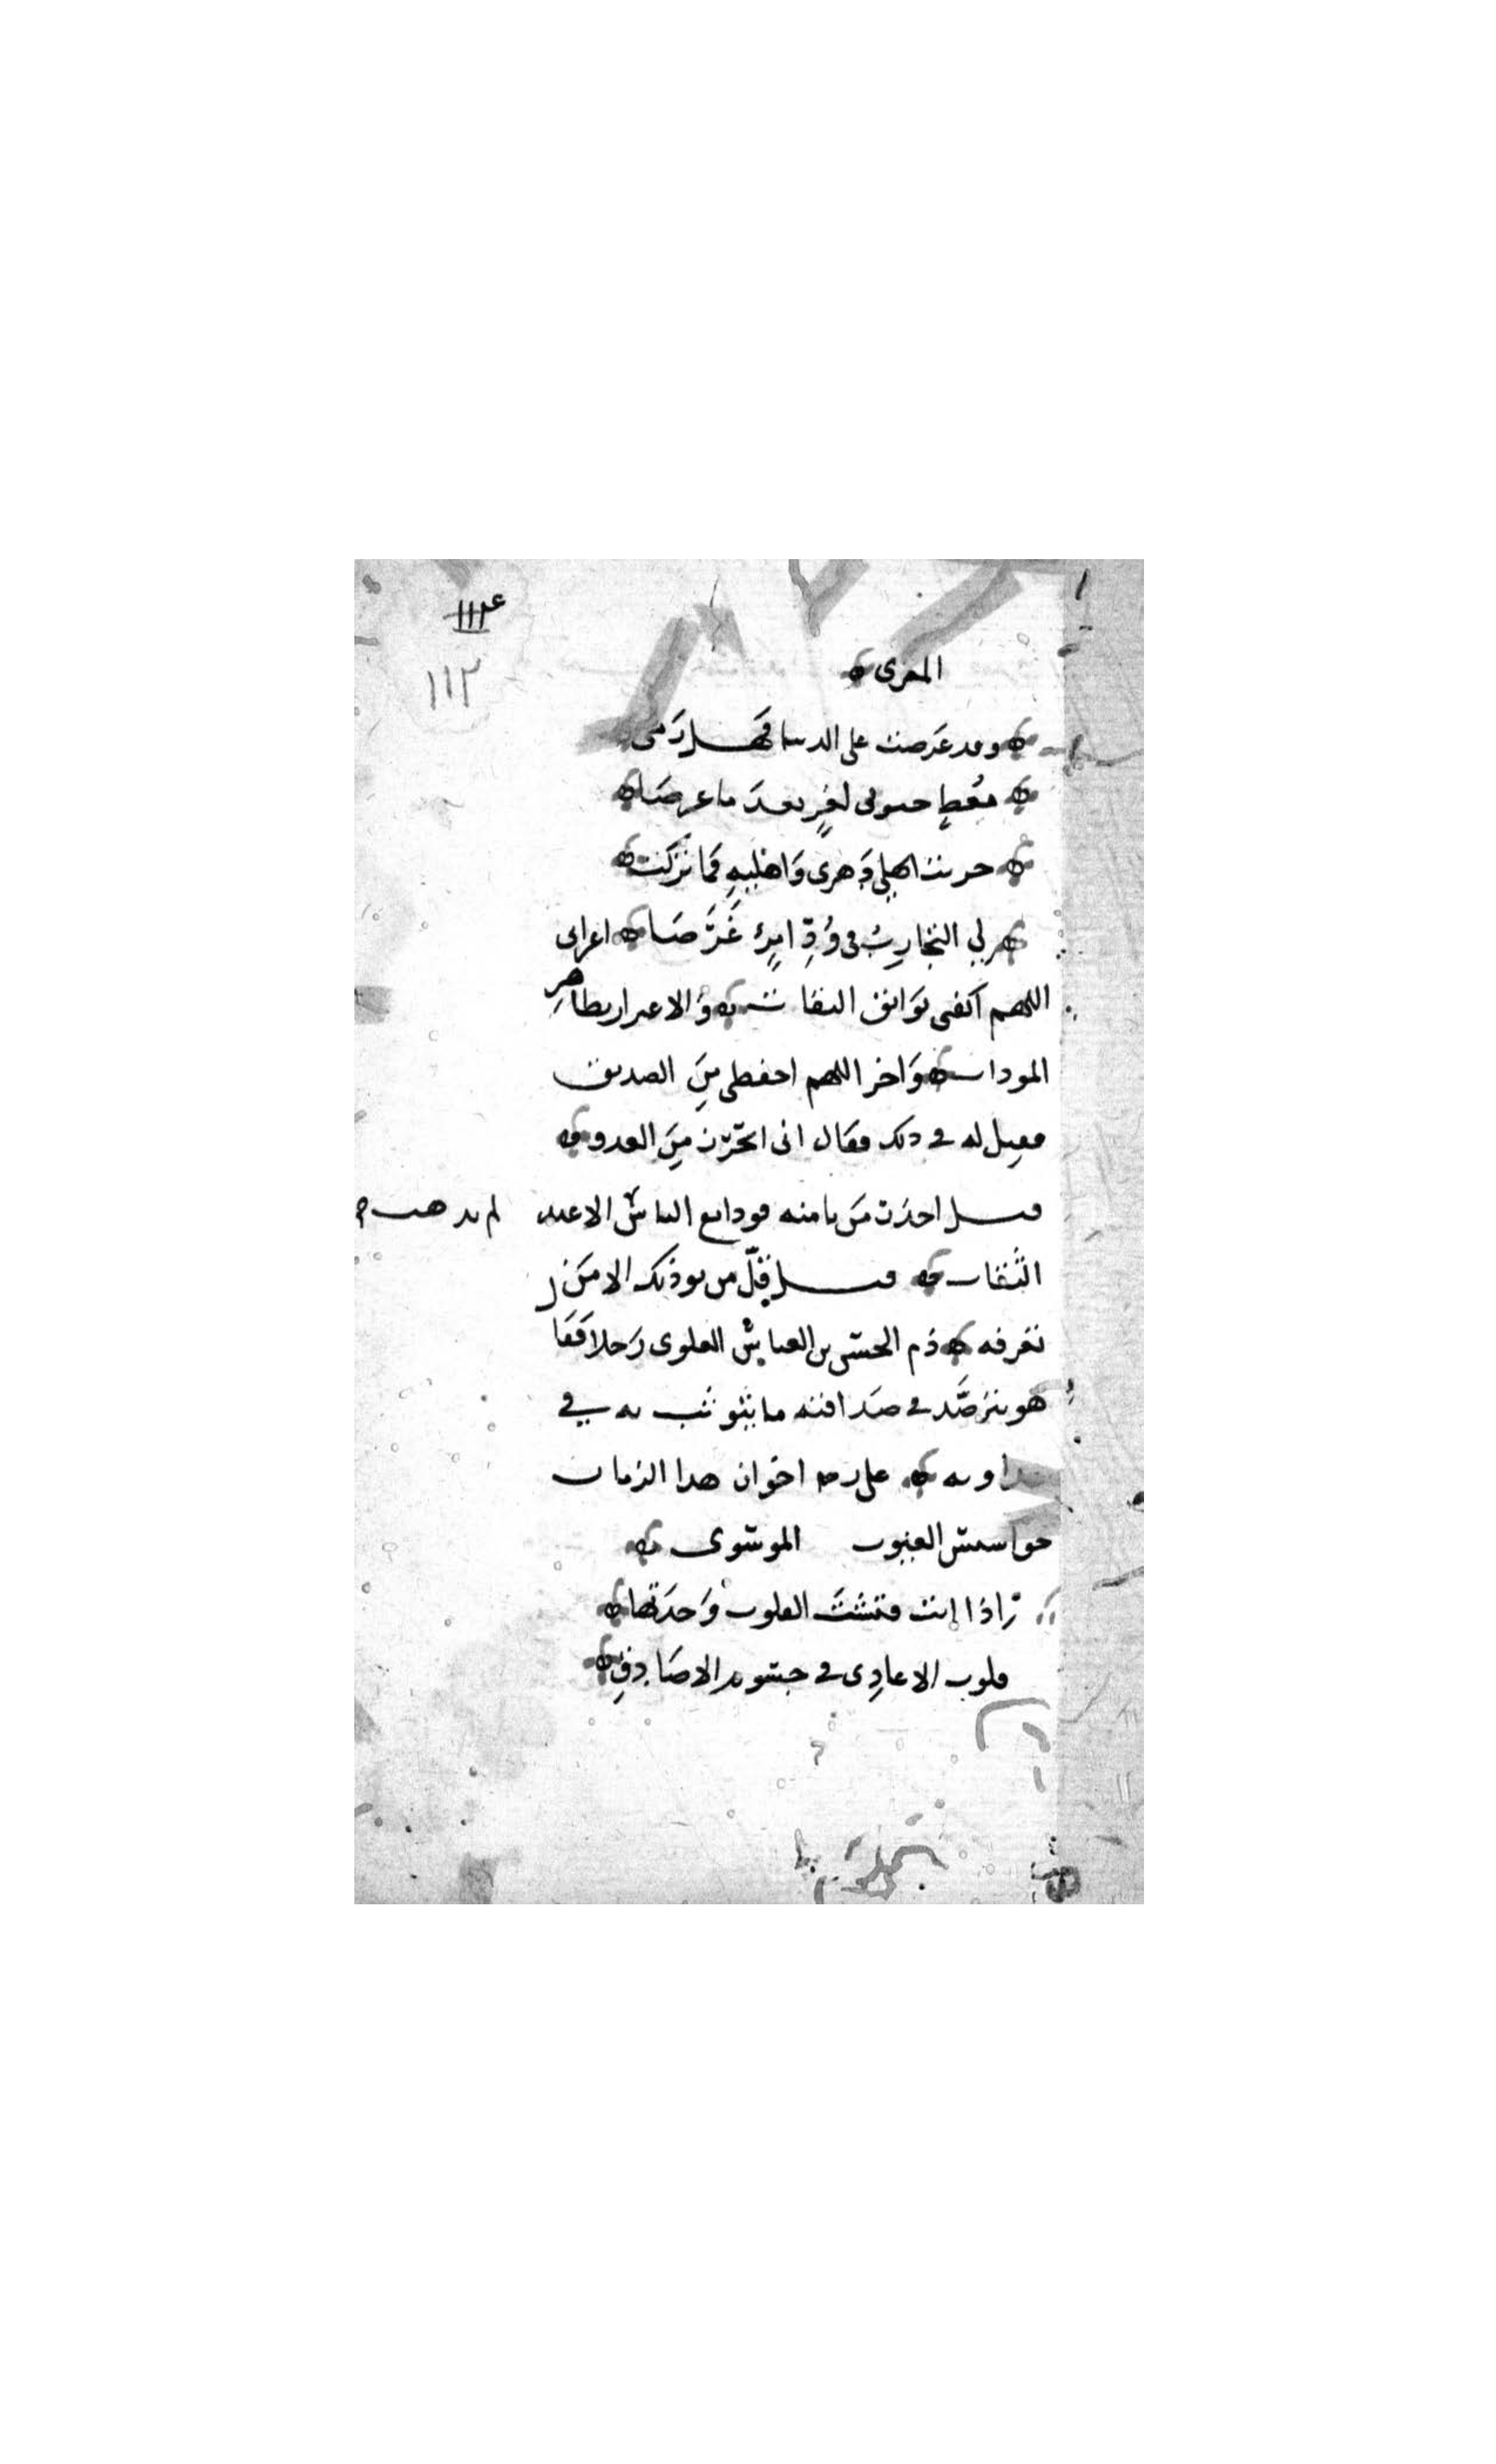 ١١٢
١١٢
المعرى
وقد غرضت على الدنيا فهل زمنى
معط حيوتى لغر بعد ما غرضا
جربت اهلي دهرى وَاهليهِ فما تركت
لي التجاربُ فى وُدِّ امرِئ غَرَّضَا اعرابى
اللهم اكفنى بَوَائق الثقات وَالاغترار بظاهِر
المودات وَاخر اللهم احفظنى مِنَ الصديق
فقيل له فى ذلك فقال انى اتحرّز مِنَ العدو
قيل احذر من تامنه فودايع الناس الا عند لم يذهب
الثقات قيل قلّ من يوذيك الا مَن
تعرفه ذم الحسن بن العباس العلوى رَجلا فَقَا
هو يترَصَّد فى صَداقته ما يتوثب به في
عداوته على رضه اخوان هذا الزمان
جواسيس العيوب الموسوى
اذا انت فتشتَ القلوب وَجدتها
قلوب الاعادِى فى جسوم الاصَادِقِ